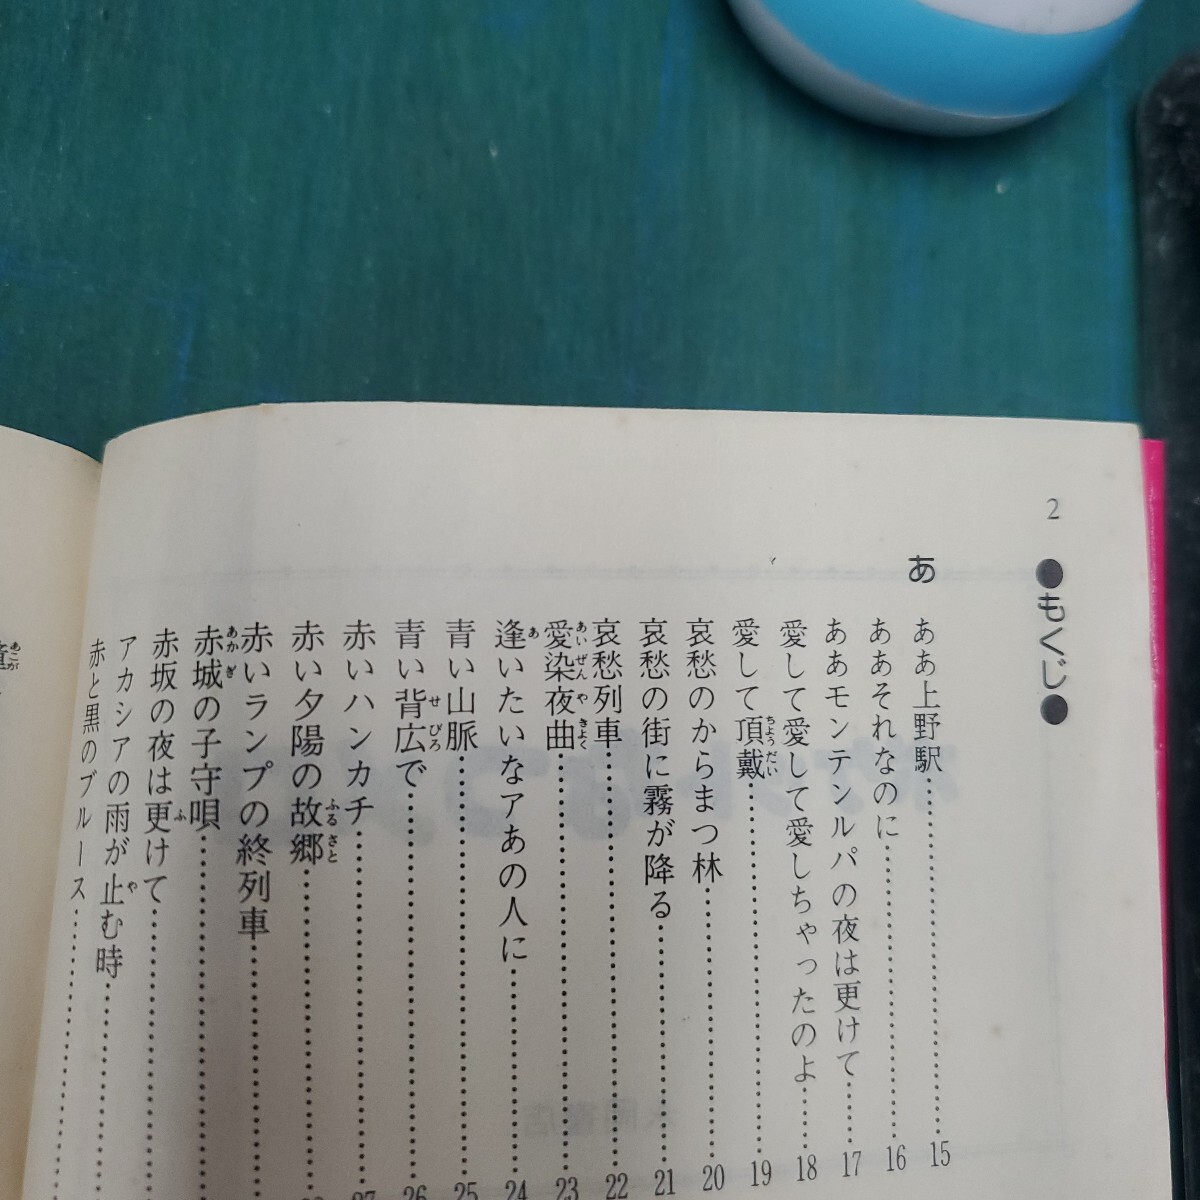 2
●もくじ●
あ
ああ上野駅……15
ああそれなのに……16
ああモンテンルパの夜は更けて……17
愛して愛して愛しちゃったのよ……18
愛して頂戴(ちょうだい)……19
哀愁のからまつ林……20
哀愁の街に霧が降る……21
哀愁列車……22
愛染夜曲(あいぜんやきょく)……23
逢(あ)いたいなアあの人に……24
青い山脈……25
青い背広(せびろ)で……26
赤いハンカチ……27
赤い夕陽の故郷(ふるさと)……
赤いランプの終列車……
赤城(あかぎ)の子守唄……
赤坂の夜は更(ふ)けて……
アカシアの雨が止(や)む時……
赤と黒のブルース……